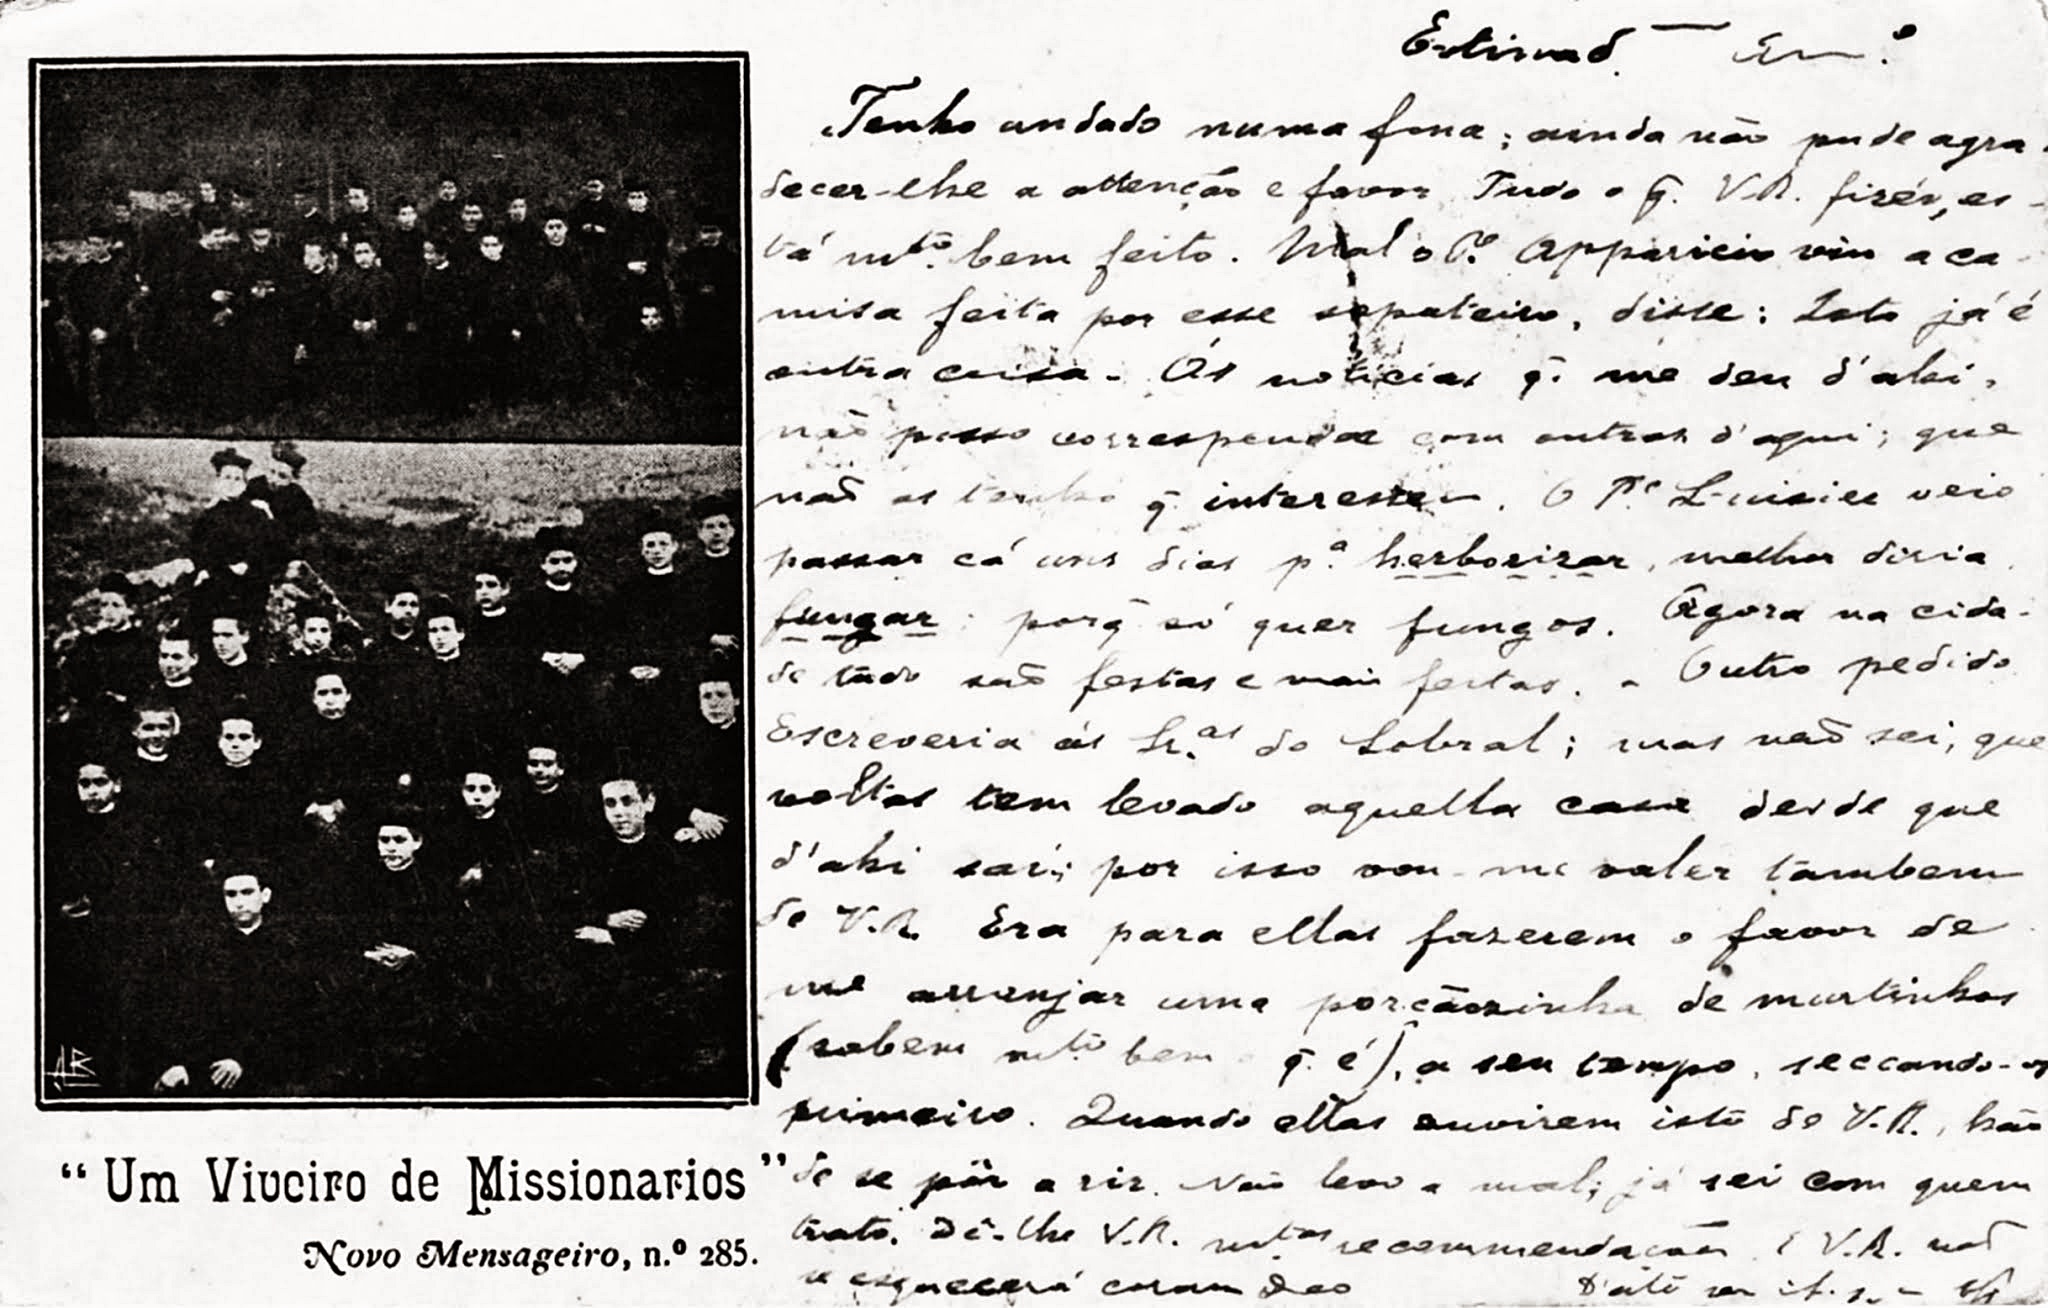 Estimad.
Tenho andado numa fona; ainda não pude agra-
decer-lhe a attenção e favor. Tudo o q. V.R. fizér, es-
tá mto. bem feito. Mal o Pe. Apparicio viu a ca-
misa feita por esse sapateiro, disse: Isto já é
outra coisa. As noticias q. me deu d'ahi,
não posso corresponder com outras d'aqui; que
não as tenho q. interessem. O Pe. Luisier veio
passar cá uns dias pa. herborizar, melhor diria
fungar; porq. só quer fungos. Agora na cida-
de tudo são festas e mais festas. - Outro pedido
Escreveria ás Sr.as do Sobral; mas não sei, que
voltas tem levado aquella casa desde que
d'ahi saí; por isso vou-me valer tambem
de V.R. Era para ellas fazerem o favor de
me arranjar uma porçãozinha de murtinhos
(sabem mto bem o q. é), a seu tempo, seccando-os
primeiro. Quando ellas ouvirem isto de V.R., hão
de se pôr a rir. Não levo a mal; já sei com quem
trato. Dê-lhe V.R. mtas recommendações. E V.R. não
se esquecerá coram Deo
"Um Viveiro de Missionarios"
Novo Mensageiro, n.º 285.
AR